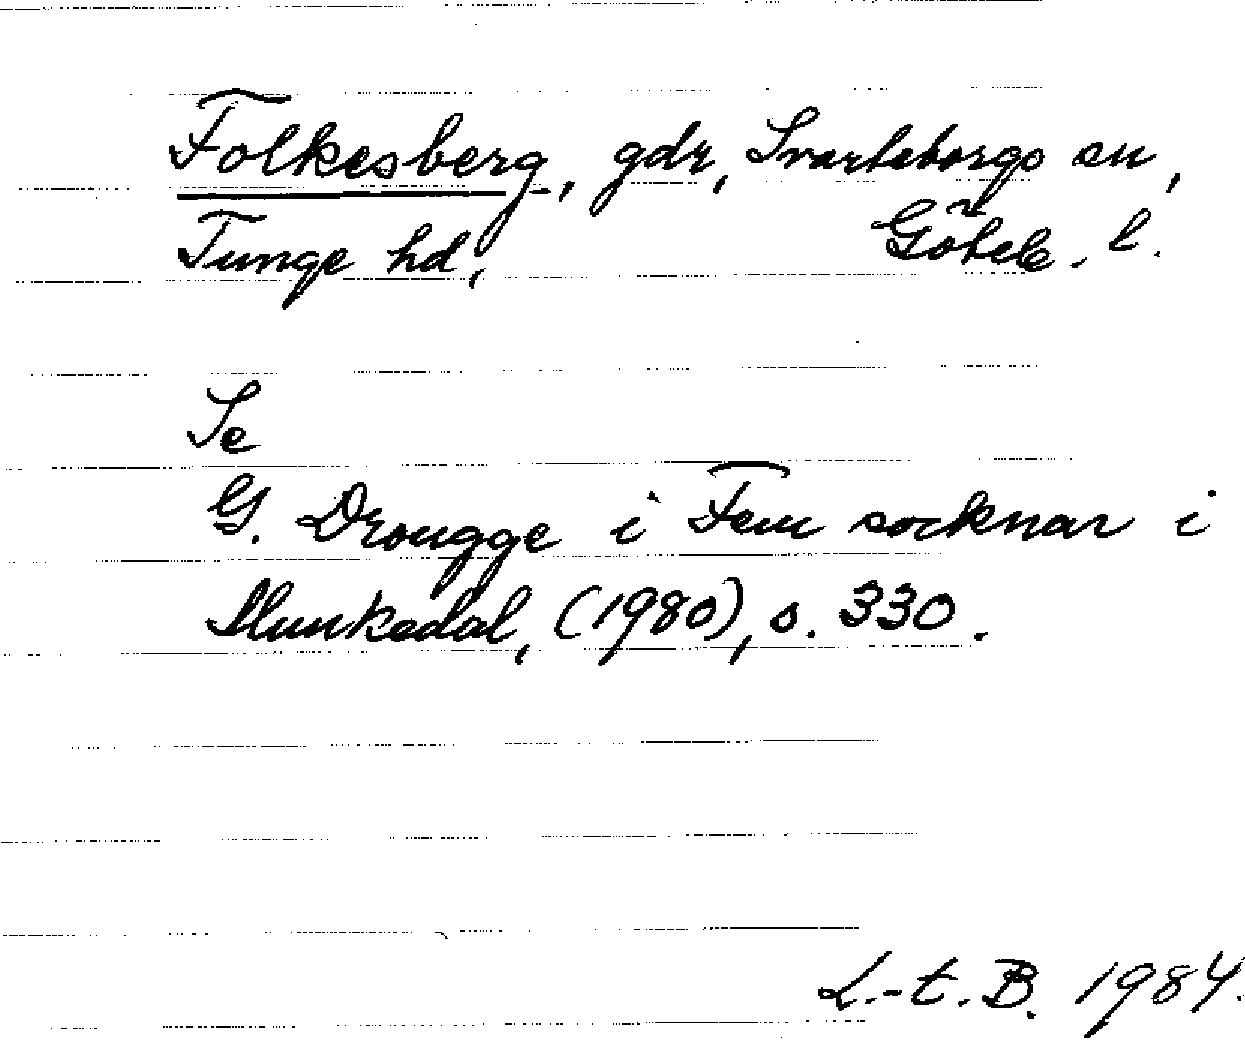 Folkesberg, gdr, Svarteborgs sn,
Tunge hd, Göteb. l.
Se
G. Drougge i Fem socknar i
Munkedal, (1980), s. 330.
L.-t. B. 1984.